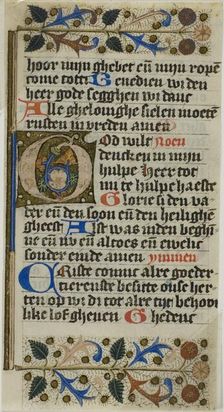 hoor mijn ghebet eñ mijn ropen
come tot ti Ghenedien wi den
heer gode segghen wi danc
Alle ghelouighe sielen moeten
rusten in vreden amen
God wilt Noen
dencken in mijn
hulpe Heer tot
mi te hulpe haeste
Glorie si den va
ter eñ den soon eñ den heilighē
gheest Alst was inden beghī
ne eñ nu eñ altoes eñ ewelic
sonder einde amen ymnien
Criste comt alre goeder
tierenste besitte onse her
ten op wi di tot alre tijt behou
like lof gheuen Ghedenc